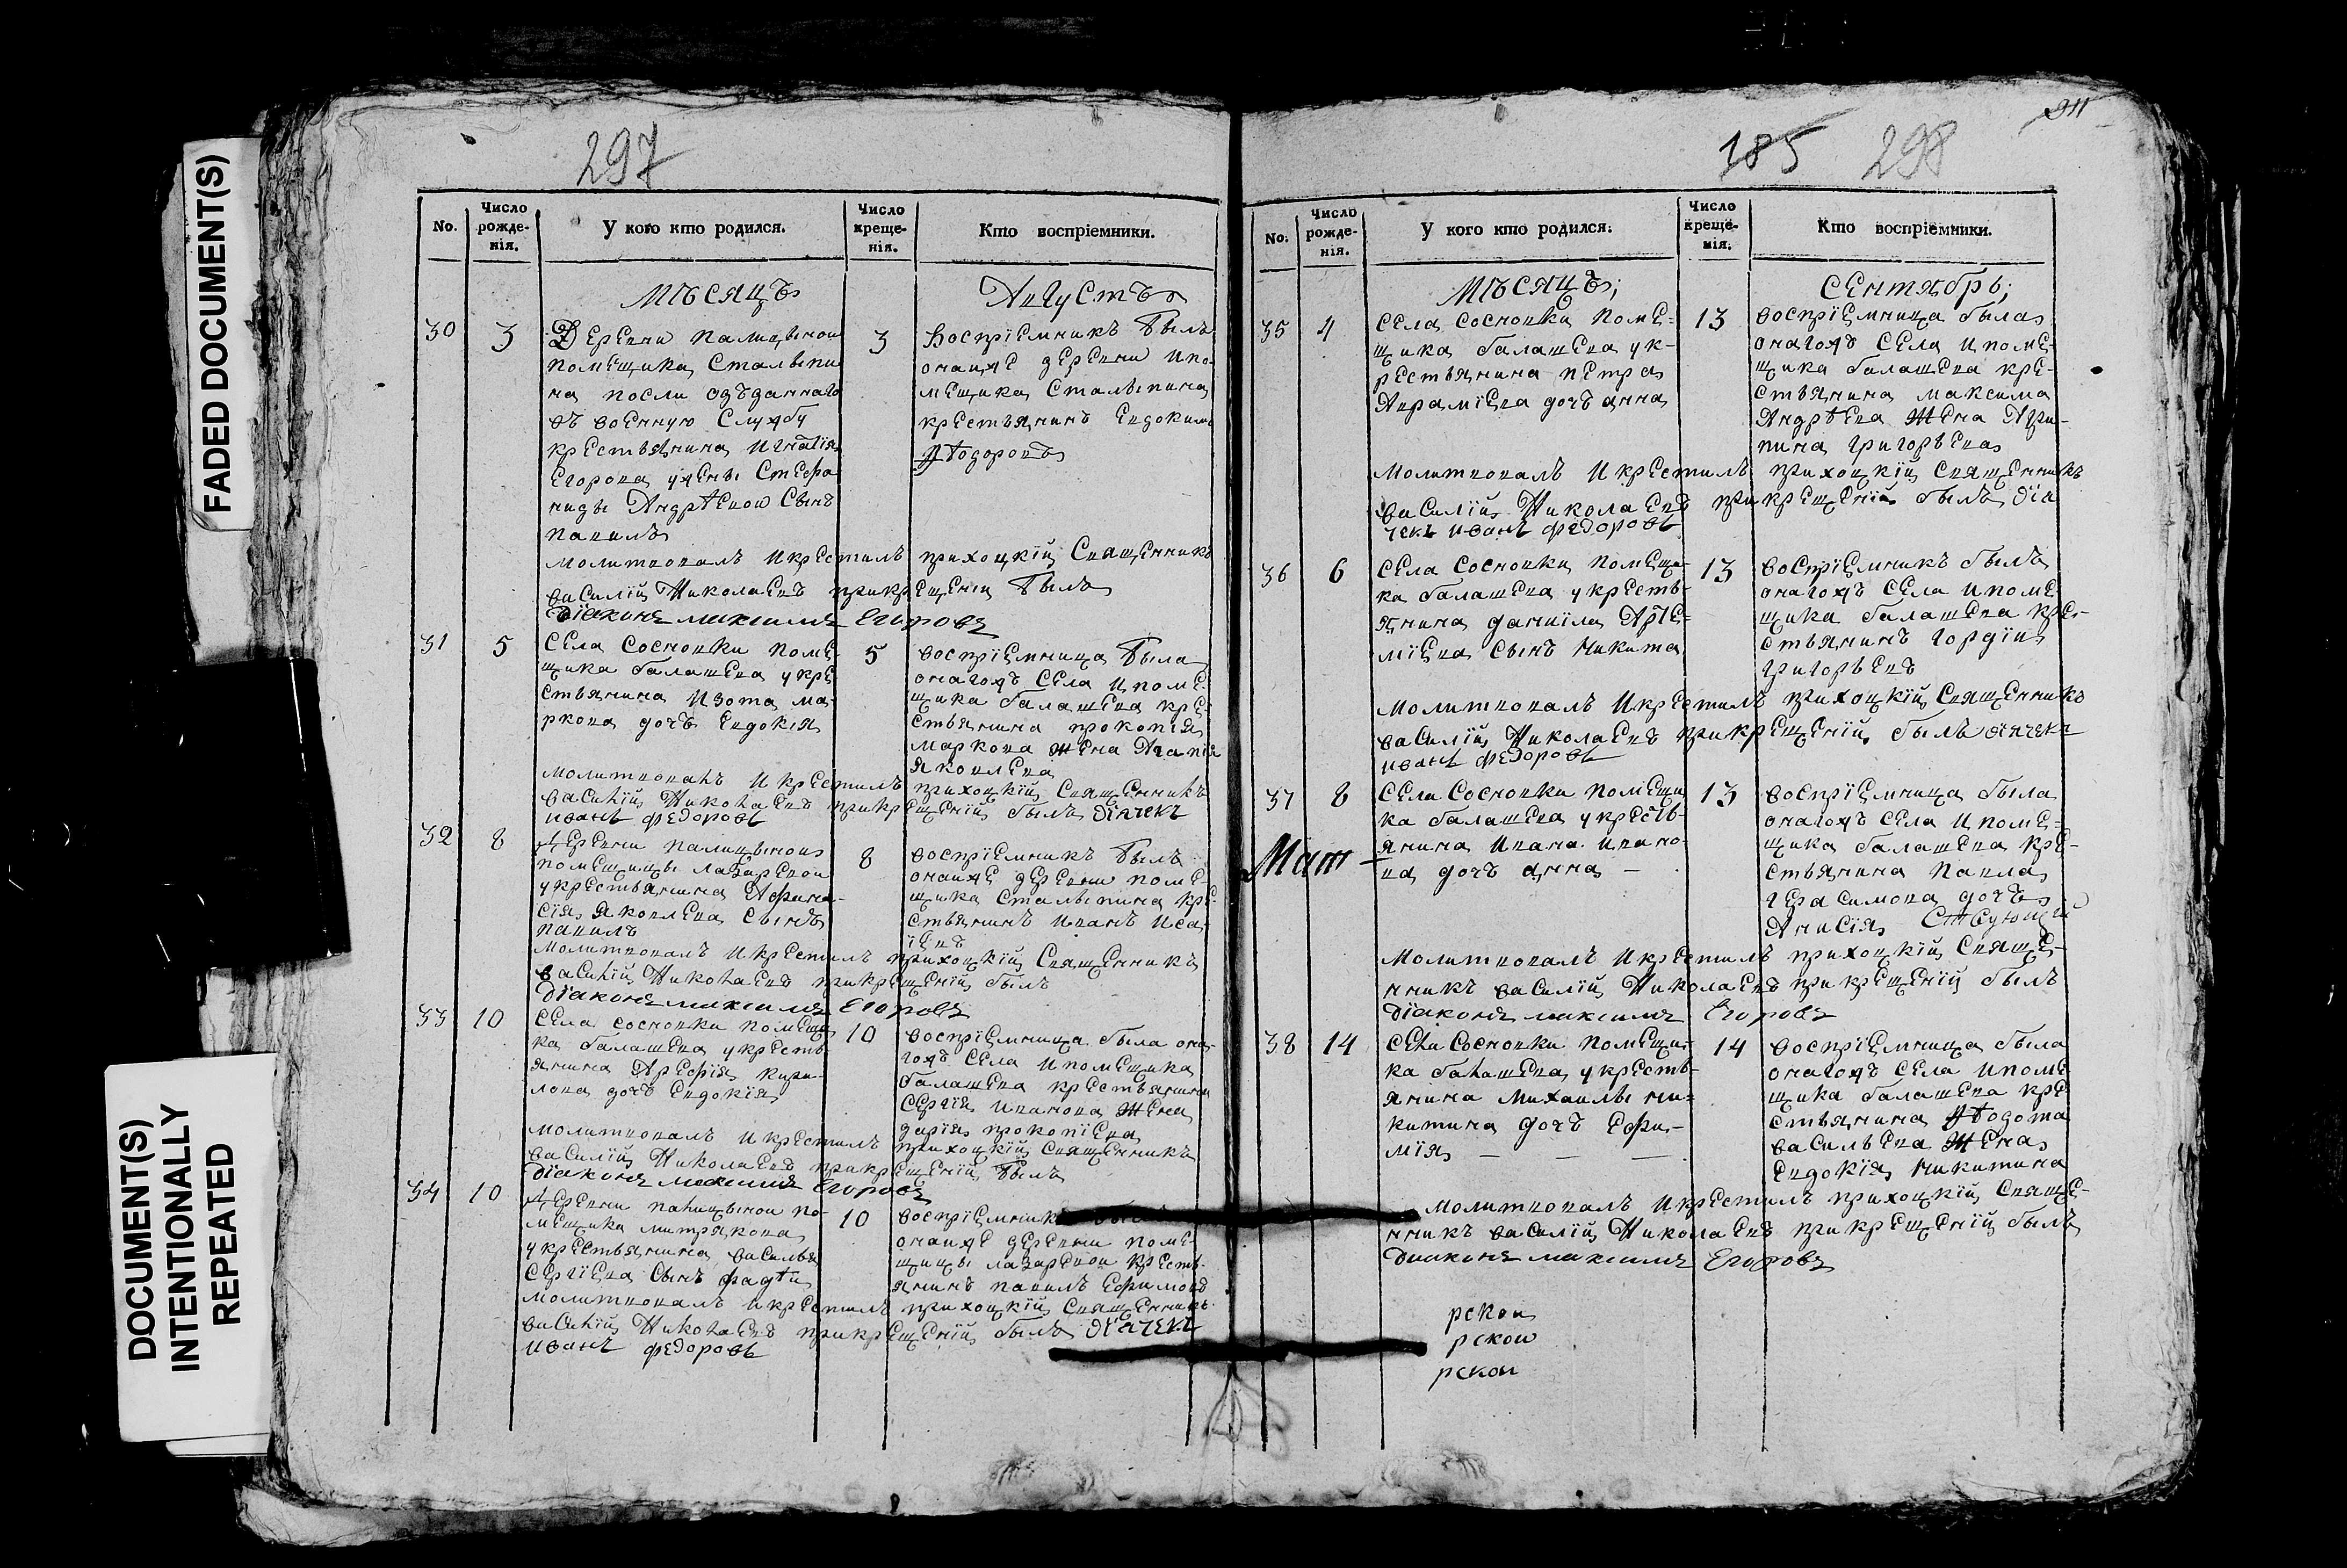 FADED DOCUMENT(S)
DOCUMENT(S)
INTENTIONALLY
REPEATED
297
No.
Число рожде-нія.
У кого кто родился.
Число креще-нія.
Кто воспріемники.
мѣсяцъ
Августъ
30
3
Деревни палицыной
помещика Сталыпи
на посли одъданнаго
въ военную Службу
крестьянина Игнатія
Егорова ужены Стефа
ниды Андрѣевой Сынъ
павилъ
3
Воспріемникъ былъ
онаиже деревни ипо-
мещика Сталыпина
крестьянинъ Евдокимъ
Ѳтодоровъ
молитвовалъ икрестилъ прихоцкій Священникъ
василій Николаевъ прикрещеніи былъ
діаконъ максимъ Егоровъ
31
5
Села Сосновки поме-
щика балашева укре
стьянина Изота ма-
ркова дочъ Евдокія
5
воспріемница была
онагожъ Села ипоме-
щика балашева кре-
стьянина прокопія
маркова жена Агапія
яковлева
молитвовалъ икрестилъ прихоцкій Священникъ
василій Николаевъ прикрещеній былъ діячекъ
иванъ федоровъ
32
8
Деревни палицыной
помещицы лазаревой
укрестьянина Афана-
сія яковлева сынъ
павилъ
8
воспріемникъ былъ
онаиже деревни поме-
щика Сталыпина кре-
стьянинъ иванъ иса-
іевъ
молитвовалъ икрестилъ прихоцкій Священникъ
василій Николаевъ прикрещеній былъ
діаконъ максимъ Егоровъ
33
10
Села сосновки помещи
ка балашева укресть-
янина Арефія кири-
лова дочъ Евдокія
10
воспріемница была она-
гожъ Села ипомещика
балашева крестьянина
Сергія иванова жена
дарія прокопіева
молитвовалъ икрестилъ прихоцкій Священникъ
василій Николаевъ прикрещеній былъ
діаконъ максимъ Егоровъ
34
10
Деревни палицыной по-
мещика митрякова
укрестьянина василья
Сергіева Сынъ фадѣй
10
воспріемникъ
онаиже деревни поме-
щицы лазаревой кресть-
янинъ павилъ Ефимовъ
молитвовалъ икрестилъ прихоцкій Священникъ
василій Николаевъ прикрещеній былъ діячекъ
иванъ федоровъ
185
298
No.
Число рожде-нія.
У кого кто родился.
Число креще-нія.
Кто воспріемники.
мѣсяцъ;
Сентябрь;
35
4
Села Сосновки поме-
щика балашева ук-
рестьянина петра
Аврамiева дочъ анна
13
воспріемница была
онагожъ Села ипоме-
щика балашева кре-
стьянина максима
Андрѣева жена Агри-
пина григорьева
молитвовалъ икрестилъ прихоцкій Священникъ
василій Николаевъ прикрещеніи былъ дія
чекъ иванъ федоровъ
36
6
Села Сосновки помещи-
ка балашева укресть-
янина даниила Арте-
міева Сынъ никита
13
воспріемникъ былъ
онагожъ Села ипоме
щика балашева кре-
стьянинъ гордій
григорьевъ
молитвовалъ икрестилъ прихоцкій Священникъ
василій Николаевъ прикрещеній былъ діячекъ
иванъ федоровъ
37
8
Села Сосновки помещи
ка балашева укресть-
янина ивана ивано-
ва дочъ анна —
13
воспріемница была
онагожъ Села ипоме-
щика балашева кре-
стьянина павла
герасимова дочъ
Анисія
молитвовалъ икрестилъ прихоцкій Свяще-
нникъ василій Николаевъ прикрещеній былъ
діаконъ максимъ Егоровъ
38
14
Села Сосновки помещи-
ка балашева укресть-
янина михаилы ни-
китина дочъ Ефи-
мія — — —
14
воспріемница была
онагожъ Села ипоме
щика балашева кре
стьянина Ѳтодота
васильева жена
Евдокія никитина
молитвовалъ икрестилъ прихоцкій Свяще-
нникъ василій Николаевъ прикрещеній былъ
диаконъ максимъ Егоровъ
рской
рской
рской